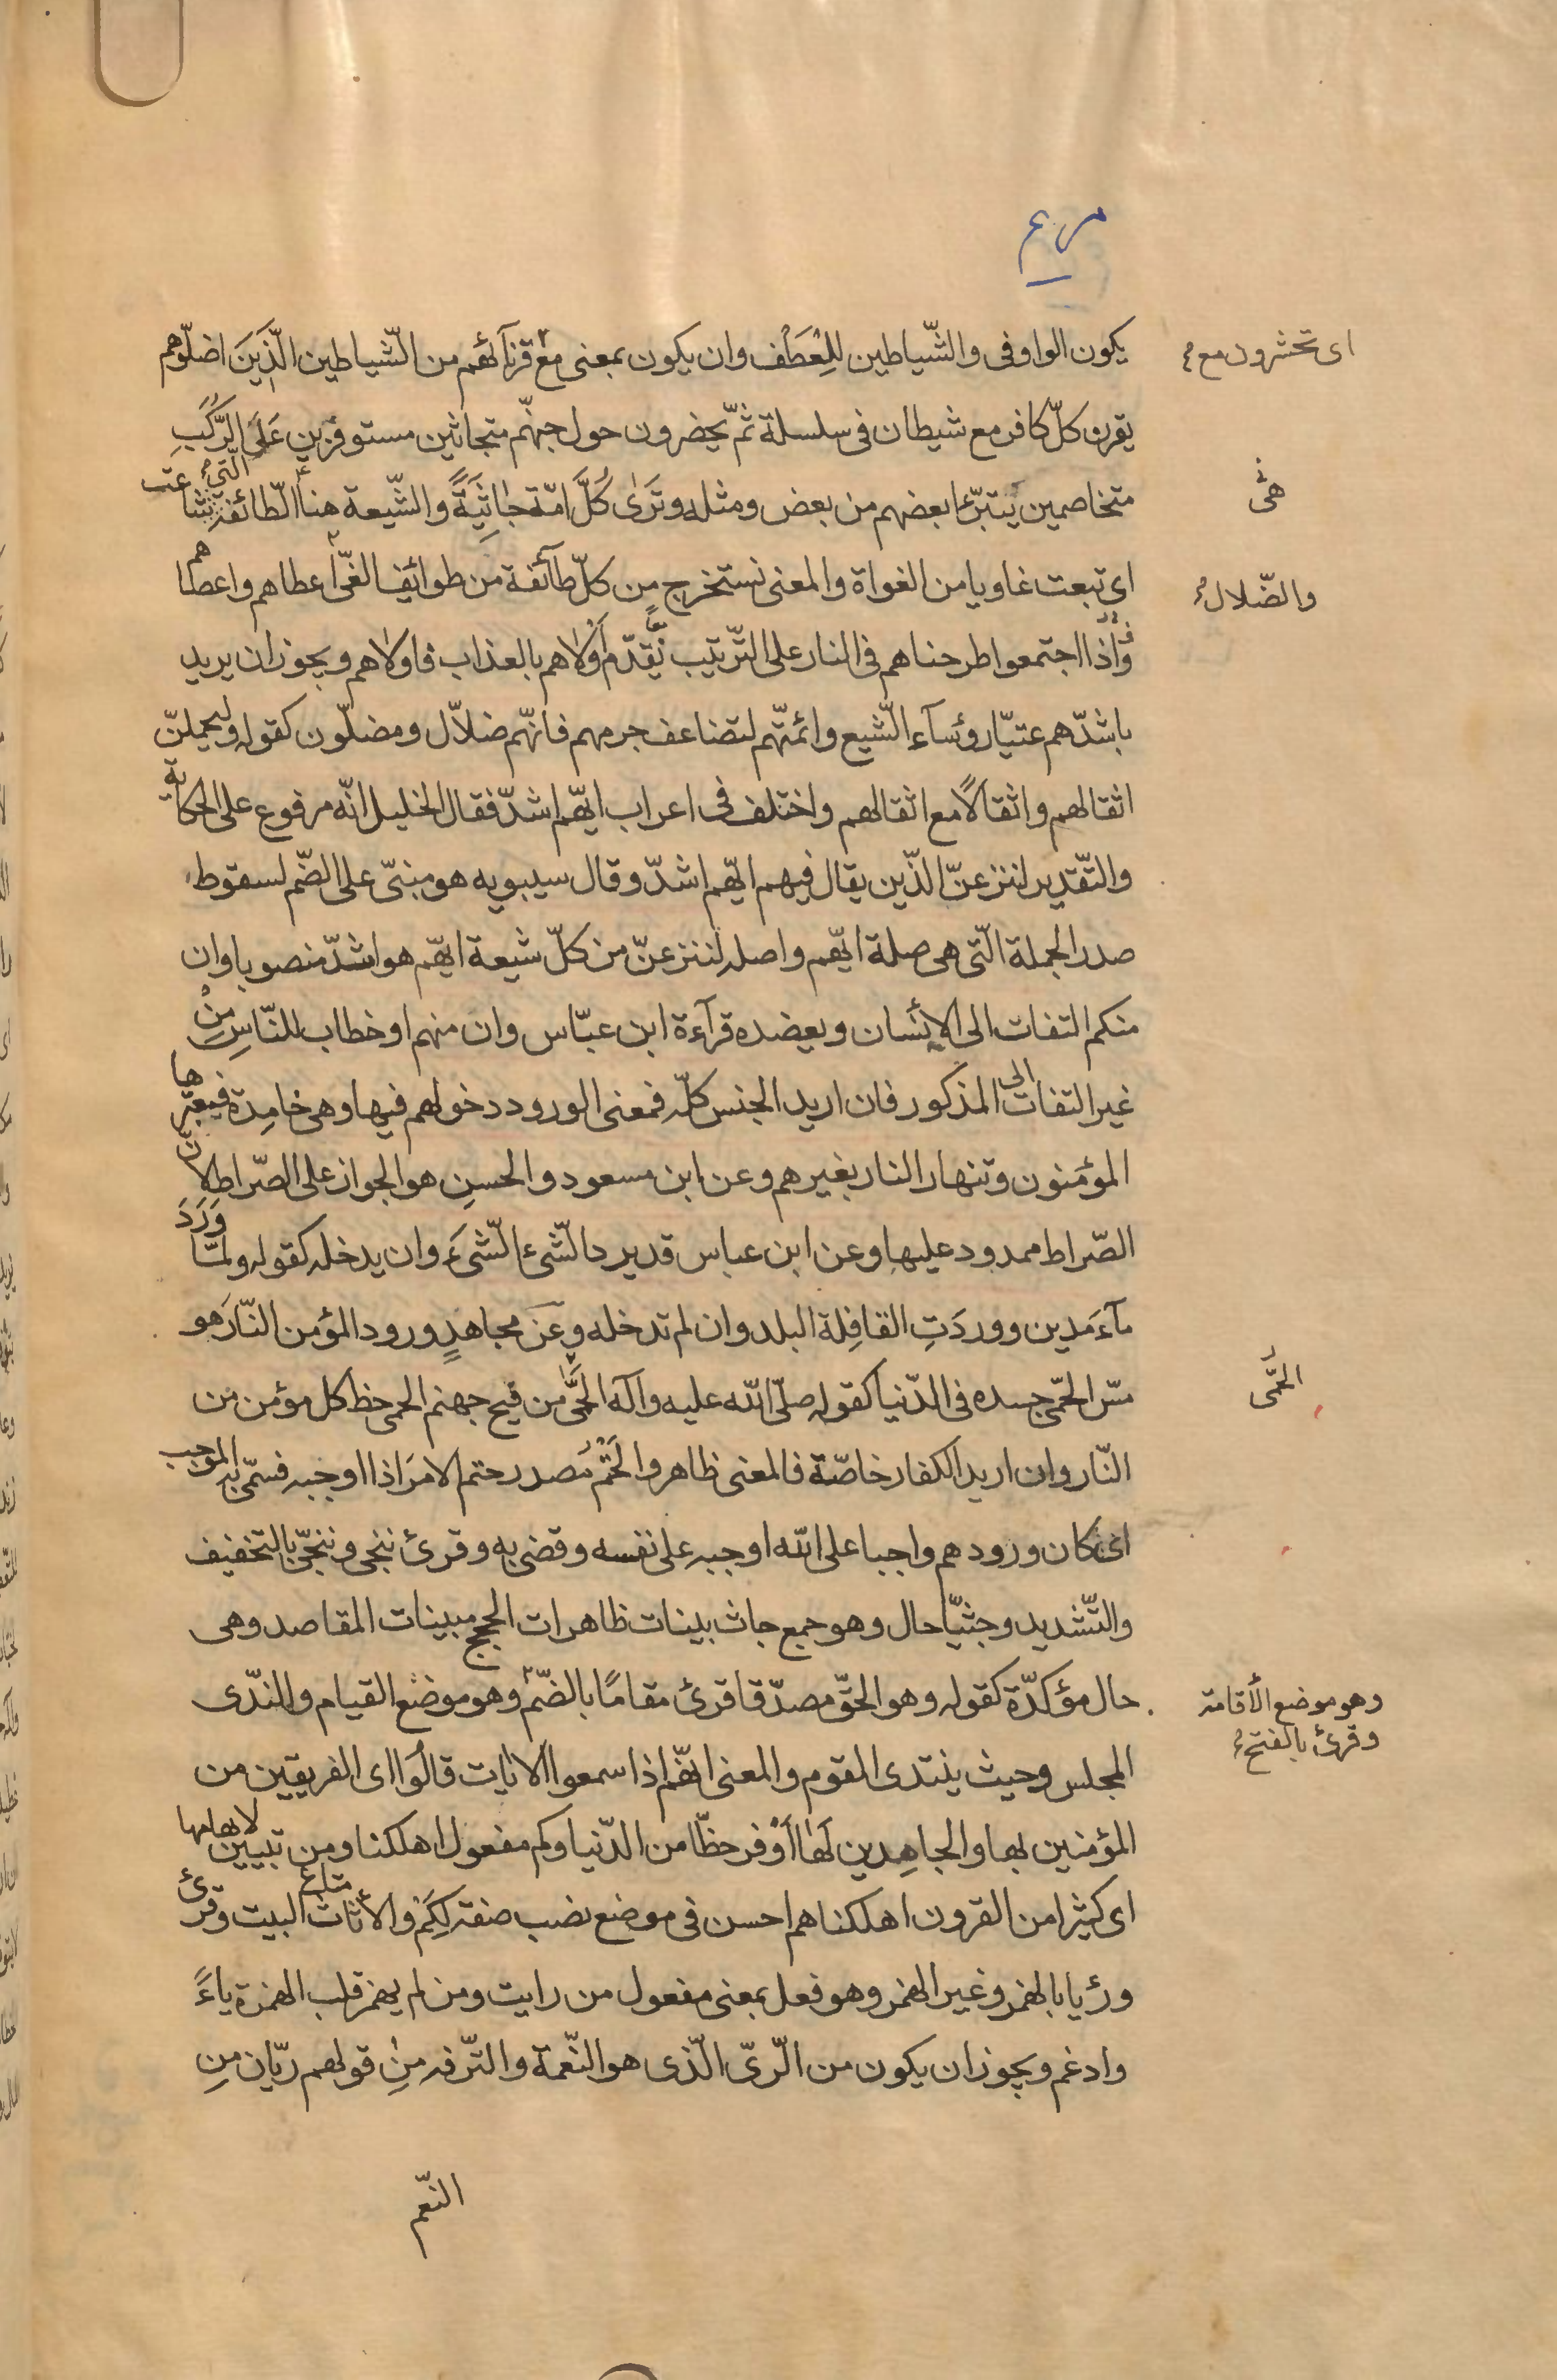 مريم
يكون الواو فى والشّياطين للعَطْف وان يكون بمعنى مع قرنآئهم من الشّياطين الّذين اضلّوهم
اى تحشرون مع
يقرن كلّ كافر مع شيطان فى سلسلة ثمّ يحضرون حول جهنّم متجاثين مستوفزين عَلَى الرُّكَبِ
متخاصمين يتبرّء بعضهم من بعض ومثله وتَرى كُلَّ امّة جاثِيَةً والشّيعة هنا الطّائفة الّتى شاعت
هى
اى تبعت غاويا من الغواة والمعنى نستخرج من كلّ طآئفة من طوائف الغىّ اعطاهم واعطاهم
والضّلال
فاذا اجتمعوا طرحناهم فى النار على التّرتيب نقدّم اَوْلاهم بالعذاب فاولاهم ويجوز ان يريد
باشدّهم عتيّا رؤسآء الشّيع وائمّتهم لتضاعف جرمهم فانّهم ضلاّل ومضلّون كقوله وليحملنّ
اثقالهم واثقالًا مع اثقالهم واختلف فى اعراب ايّهم اشدّ فقال الخليل انّه مرفوع على الحكاية
والتّقدير لننزعنّ الذّين يقال فيهم ايّهم اشدّ وقال سيبويه هو مبنىّ على الضّم لسقوط
صدر الجملة الّتى هى صلة ايّهم واصله لننزعنّ من كلّ شيعة ايّهم هو اشدّ منصوبا وان
منكم التفات الى الإنسان ويعضده قرآءة ابن عبّاس وان منهم او خطاب للنّاسِ مِنْ
غير التفات الى المذكور فان اريد الجنس كلّه فمعنى الورود دخولهم فيها وهى خامِدة فيعبرها
المؤمنون وتنهار النار بغيرهم وعن ابن مسعود والحسنِ هو الجواز على الصّراط لانّ
الصّراط ممدود عليها وعن ابن عباس قد يرد الشّئ الشّئَ وان يدخله كقوله ولمّا وَرَدَ
مآءَ مَدين ووردَتِ القافِلة البلد وان لم تدخله وعَن مجاهدٍ ورود المؤمن النّارَ هو
مسّ الحمّى جسده فى الدّنيا كقوله صلّى الله عليه وآله الحُمَّى من فيح جهنم الحمى حظ كل مؤمن من
الحُمَّى
النّار وان اريد الكفار خاصّة فالمعنى ظاهر والحَتْمُ مَصدر حتم الامرَ اذا اوجبه فسمّى به الموجب
اى كان ورودهم واجبا على الله اوجبه على نفسه وقضى به وقرئ ننجى وننجّى بالتخفيف
والتّشديد وجثيّا حال وهو جمع جاث بينات ظاهرات الحجج مبينات المقاصد وهى
حال مؤكدّة كقوله وهو الحقّ مصدّقا قرئ مقامًا بالضّم وهو موضع القيام والندّى
وهو موضع الأقامة
وقرئ بالفتح
المجلس وحيث ينتدى القوم والمعنى انهّم اذا سمعوا الايات قالُوا اى الفريقين من
المؤمنين بها والجاهِدين لَهَا اَوْفر حظّا من الدّنيا وكم مفعول اهلكنا ومن تبيين لابهامها
اى كثيرا من القرون اهلكناهم احسن فى موضع نصب صفة لِكَم والاثاث متاع البيت وقرئ
ورءيا بالهمز وغير الهمز وهو فعل بمعنى مفعول من رايت ومن لم يهمز قلب الهمزة ياءً
وادغم ويجوز ان يكون من الرىّ الّذى هو النّعمة والتّرفه مِنْ قولهم ريّان مِن
النّعم